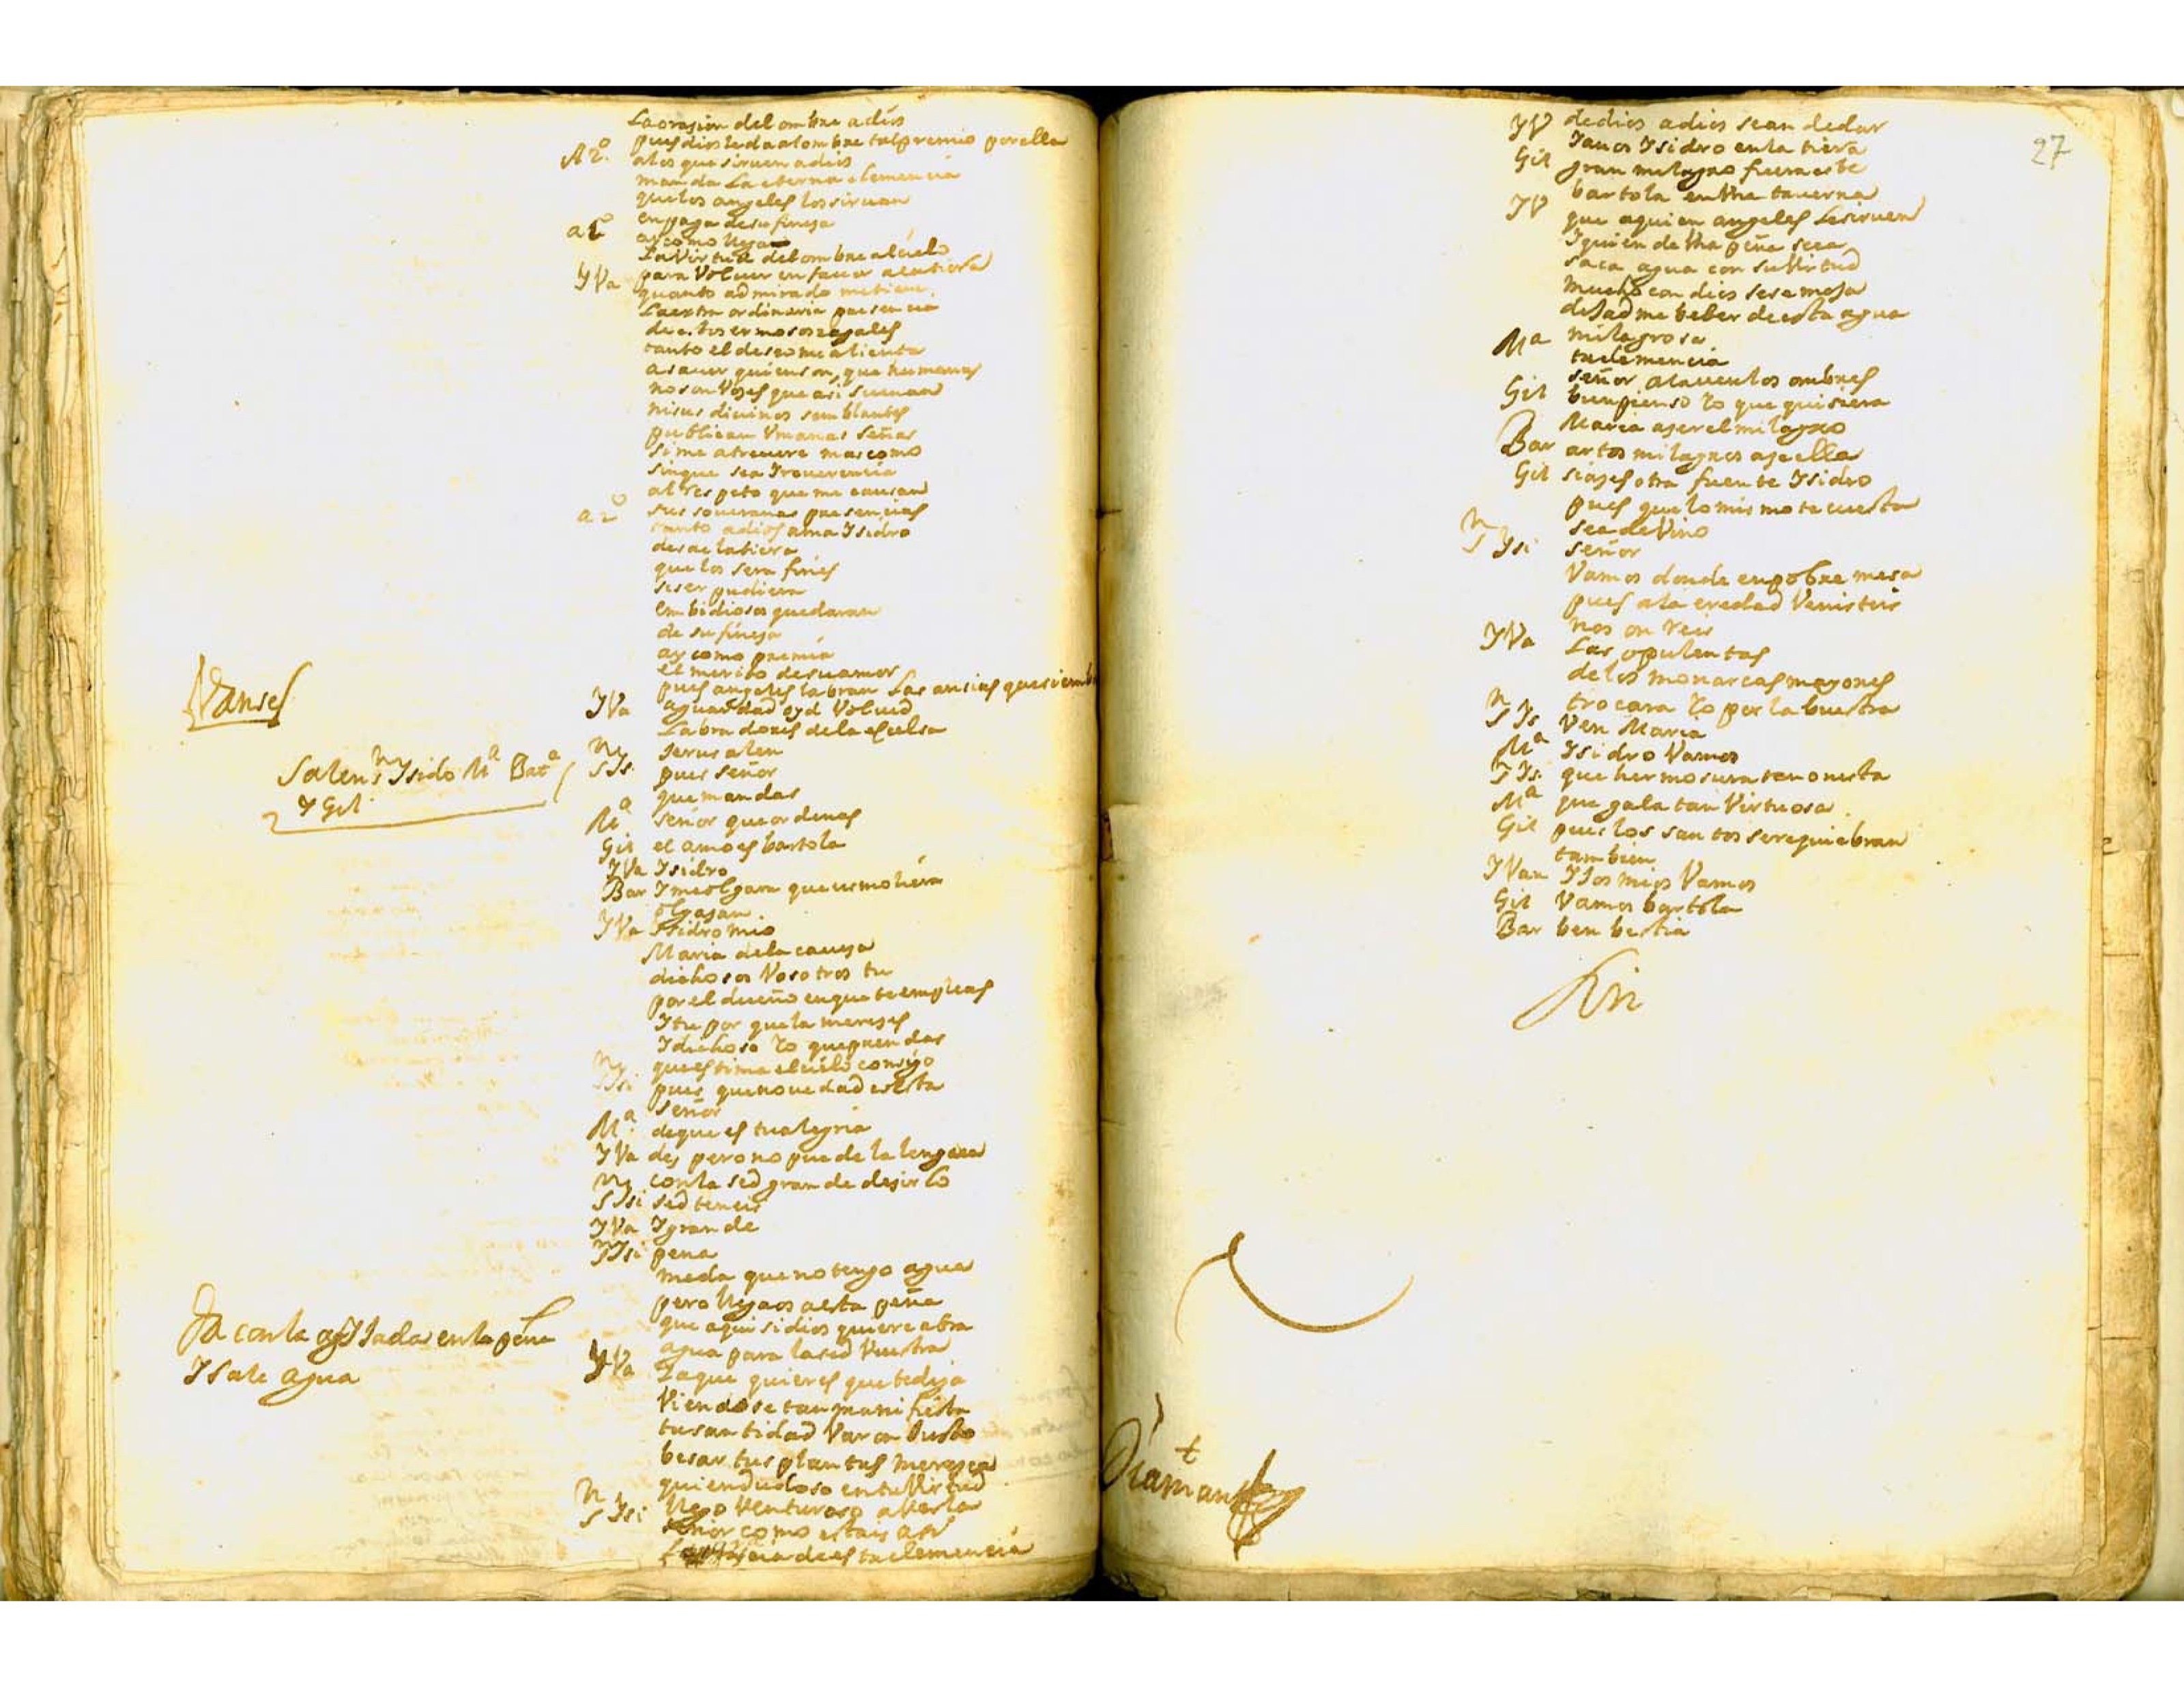 La orasion del ombre a dios
pues dios le da al ombre tal premio por ella
A 2º a los que siruen a dios
manda La eterna clemencia
que los angeles los siruan
en paga de su finesa
a 1º asi como llega
La Virtud del ombre al cielo
YVa para Voluer en fauor a la tiera
quanto admirado me tiene
La extra ordinaria presencia
de estos ermosos zagales
tanto el deseo me alienta
a sauer quien son, que humanas
no son Voses que asi suenan
ni sus diuinos semblantes
publican Vmanas señas
si me atreuere mas como
sin que sea Yreuerencia
al respeto que me causan
sus soueranas presencias
a 2º tanto a dios ama Ysidro
desde la tiera
que los serafines
si ser pudiera
embidiosos quedaran
de su finesa
ay como premia
el merito de su amor
pues angeles labran Las ansias que siembra
Vanse
YVa aguardad oyd Volued
Labradores de la eselsa
Jerusalen
Salen Sn Ysido Mª Batª
y Gil
Sn Is. pues señor
que mandas
Mª señor que ordenas
Gil el amo es bartola
YVa Isidro
Bar Y mesclgara que us mohera
olgasan
YVa Isidro mio
Maria de la cauesa
dichosos Vosotros tu
por el dueño en que te empleas
Y tu por que la mereses
Y dichoso Yo que prendas
que estima el cielo consigo
Sn Isi. pues que nouedad es esta
señor
Mª de que es tu alegria
YVa de pero no puede la lengua
con la sed grande desirlo
Sn Isi sed teneis
YVa Y grande
Sn Isi pena
me da que no tengo agua
pero llegaos a esta peña
que aqui si dios quiere abra
agua para la sed Vuestra
Da con la agijada en la peña
Y sale agua
YVa Ya que quieres que te diga
Viendose tan manifiesta
tu santidad Varon Justo
besar tus plantas meresca
quien dudoso en tu Virtud
llego Venturoso a Verla
Sn Isi: señor como estais asi
de es tu clemencia
27
YV de dios a dios sean de dar
Gil Yauos Ysidro en la tiera
gran milagro fuera este
bartola en Vna tauerna
YV que a quien angeles Le siruen
Y quien de Vna peña seca
saca agua con su Virtud
mucho con dios se semeja
dejadme beber de esta agua
milagrosa
Mª tu clemencia
señor alauen los ombres
Gil buen pienso Yo que quisiera
Maria aser el milagro
Bar artos milagros ase ella
Gil si ases otra fuente Ysidro
pues que lo mismo te cuesta
sea de Vino
Sn Isi: señor
Vamos donde en pobre mesa
pues a la eredad Venisteis
nos onreis
YVa Las opulentas
de los monarcas mayores
trocara Yo por la buestra
Sn Is Ven Maria
Mª Isidro Vamos
Sn Is. que hermosura tan onesta
Mª que gala tan Virtuosa
Gil pues los santos se requiebran
tambien
YVan Yjos mios Vamos
Gil Vamos bartola
Bar ben bestia
Fin
Diamante